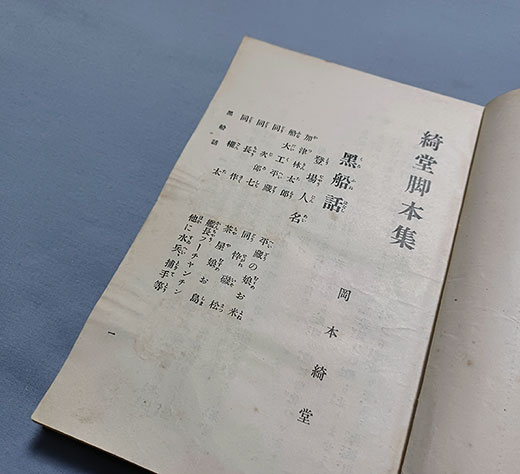 綺堂脚本集
岡本綺堂
黑船話
登場人名
加津林太郎
船大工平藏
同 次郎七
同 長作
同 權太
平藏の娘お米
同 忰磯松
茶屋娘お島
艦長プーチャンチン
他に水兵捕手等
黑船話
一